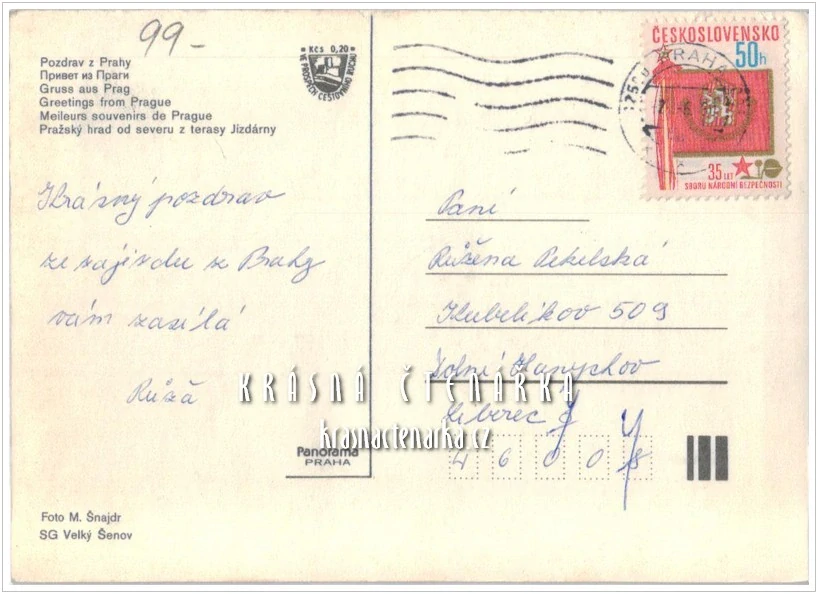 99-
Pozdrav z Prahy
Привет из Праги
Gruss aus Prag
Greetings from Prague
Meileurs souvenirs de Prague
Pražský hrad od severu z terasy Jízdárny
Kčs 0,20
VE PROSPĚCH CESTOVNÍHO RUCHU
ČESKOSLOVENSKO
50h
PRAHA
35 LET
SBORU NÁRODNÍ BEZPEČNOSTI
Krásný pozdrav
ze zajezdu z Prahy
vám zasílá
Růža
Paní
Růžena Pekelská
Kubelíkov 509
Dolní Hanychov
Liberec
46008
KRÁSNÁ ČTENÁŘKA
krasnactenarka.cz
Panorama
PRAHA
Foto M. Šnajdr
SG Velký Šenov